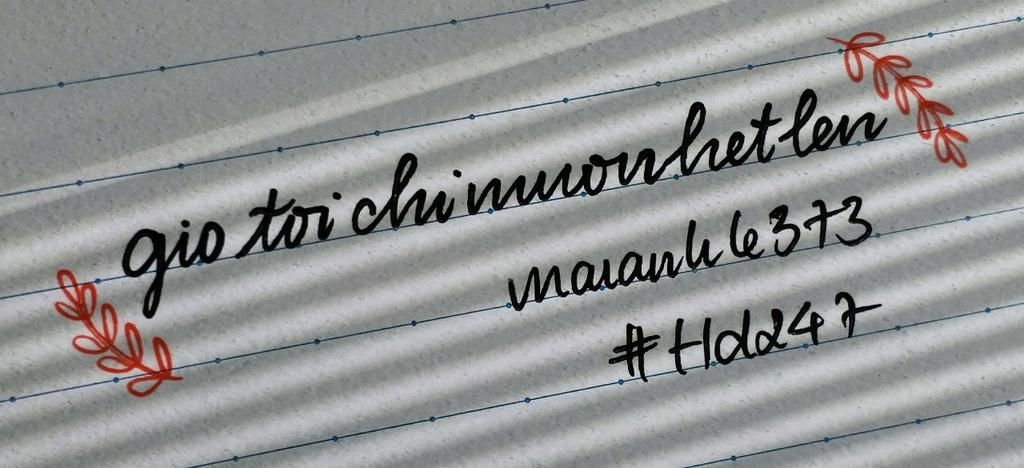 gio toi chi muon het len
maianh6373
#Hd247